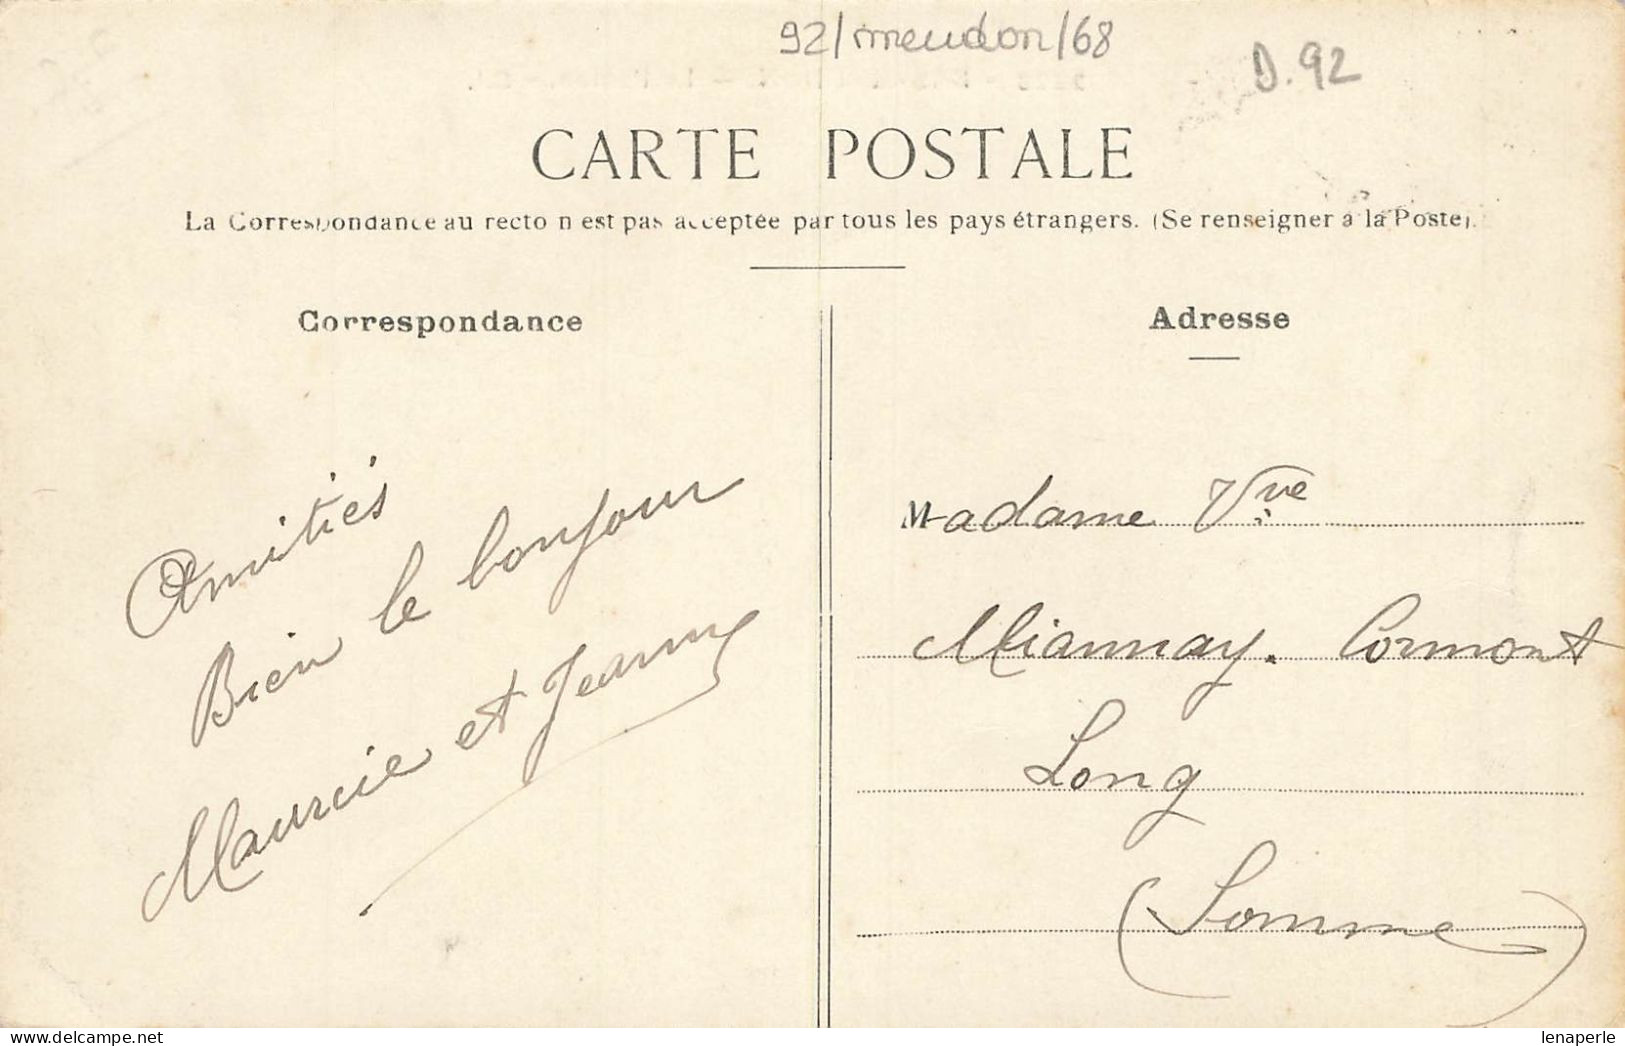 92/meudon/68
D. 92
CARTE POSTALE
La Correspondance au recto n est pas acceptée par tous les pays étrangers. (Se renseigner à la Poste).
Correspondance
Amitiés
Bien le bonjour
Maurcie et Jeanne
Adresse
Madame Vve
Miannay. Cormont
Long
(Somme)
lenaperle